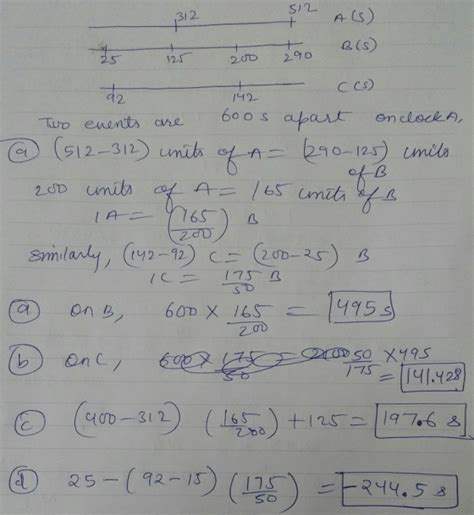 312 512 A(s)
25 125 200 290 B(s)
92 142 C(s)
Two events are 600s apart on clock A,
(a) (512-312) units of A = (290-125) units of B
200 units of A = 165 units of B
1A = (165/200) B
Similarly, (142-92) C = (200-25) B
1C = 175/50 B
(a) On B, 600 × 165/200 = 495 s
(b) On C, 600 × 175/50 = 50/175 × 495
= 141.428
(c) (400-312) (165/200) + 125 = 197.6 s
(d) 25-(92-15) (175/50) = -244.5 s